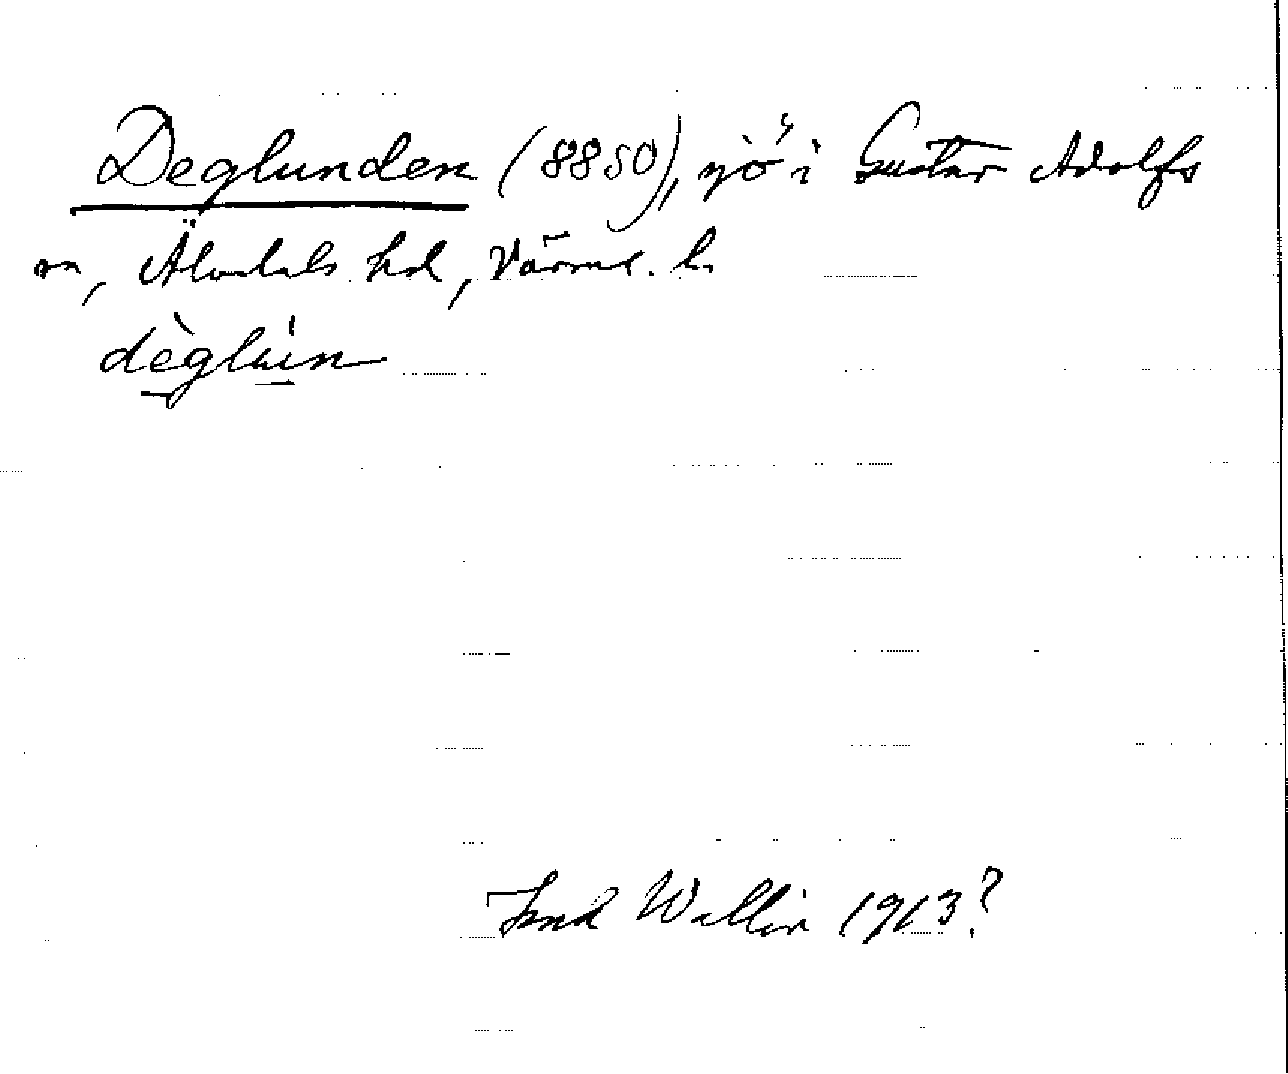 Deglunden (8850), sjö i Gustav Adolfs
sn, Älvdals hd, Värml. l.
dèglùn
Fred Wallin 1913?